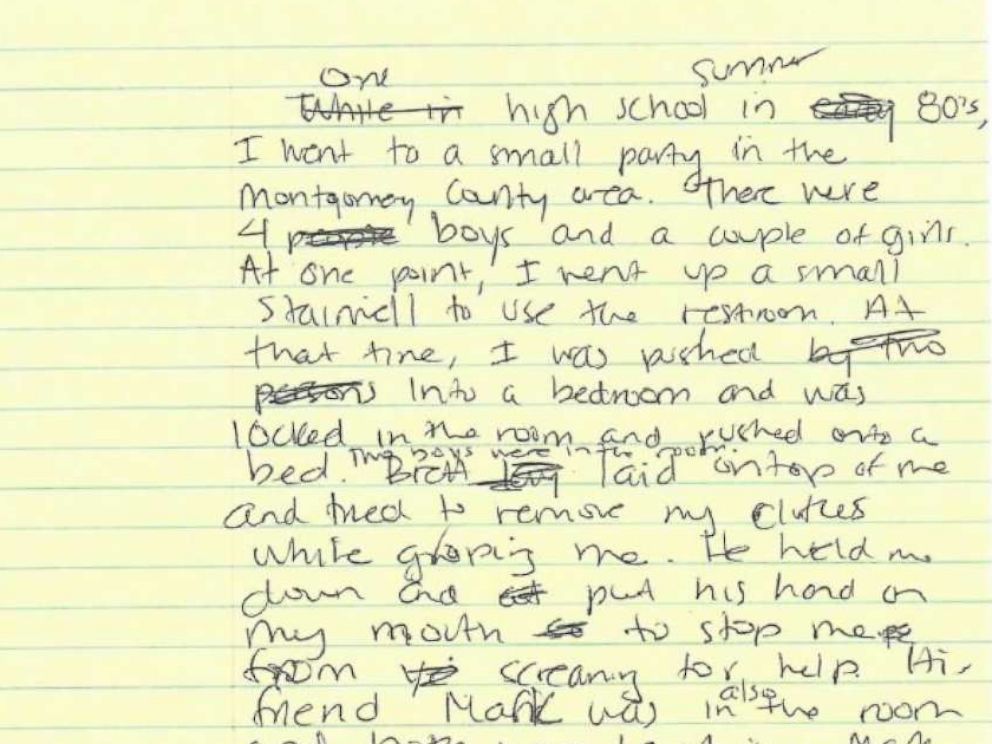 One summer
~~While in~~ high school in ~~early~~ 80's,
I went to a small party in the
Montgomery County area. There were
4 ~~people~~ boys and a couple of girls.
At one point, I went up a small
stairwell to use the restroom. At
that time, I was pushed ~~by two~~
~~persons~~ into a bedroom and was
locked in the room and pushed onto a
Two boys were in the room.
bed. Brett ~~lay~~ laid on top of me
and tried to remove my clothes
while groping me. He held me
down and put his hand on
my mouth to stop me
from screaming for help. His
also
friend Mark was in the room